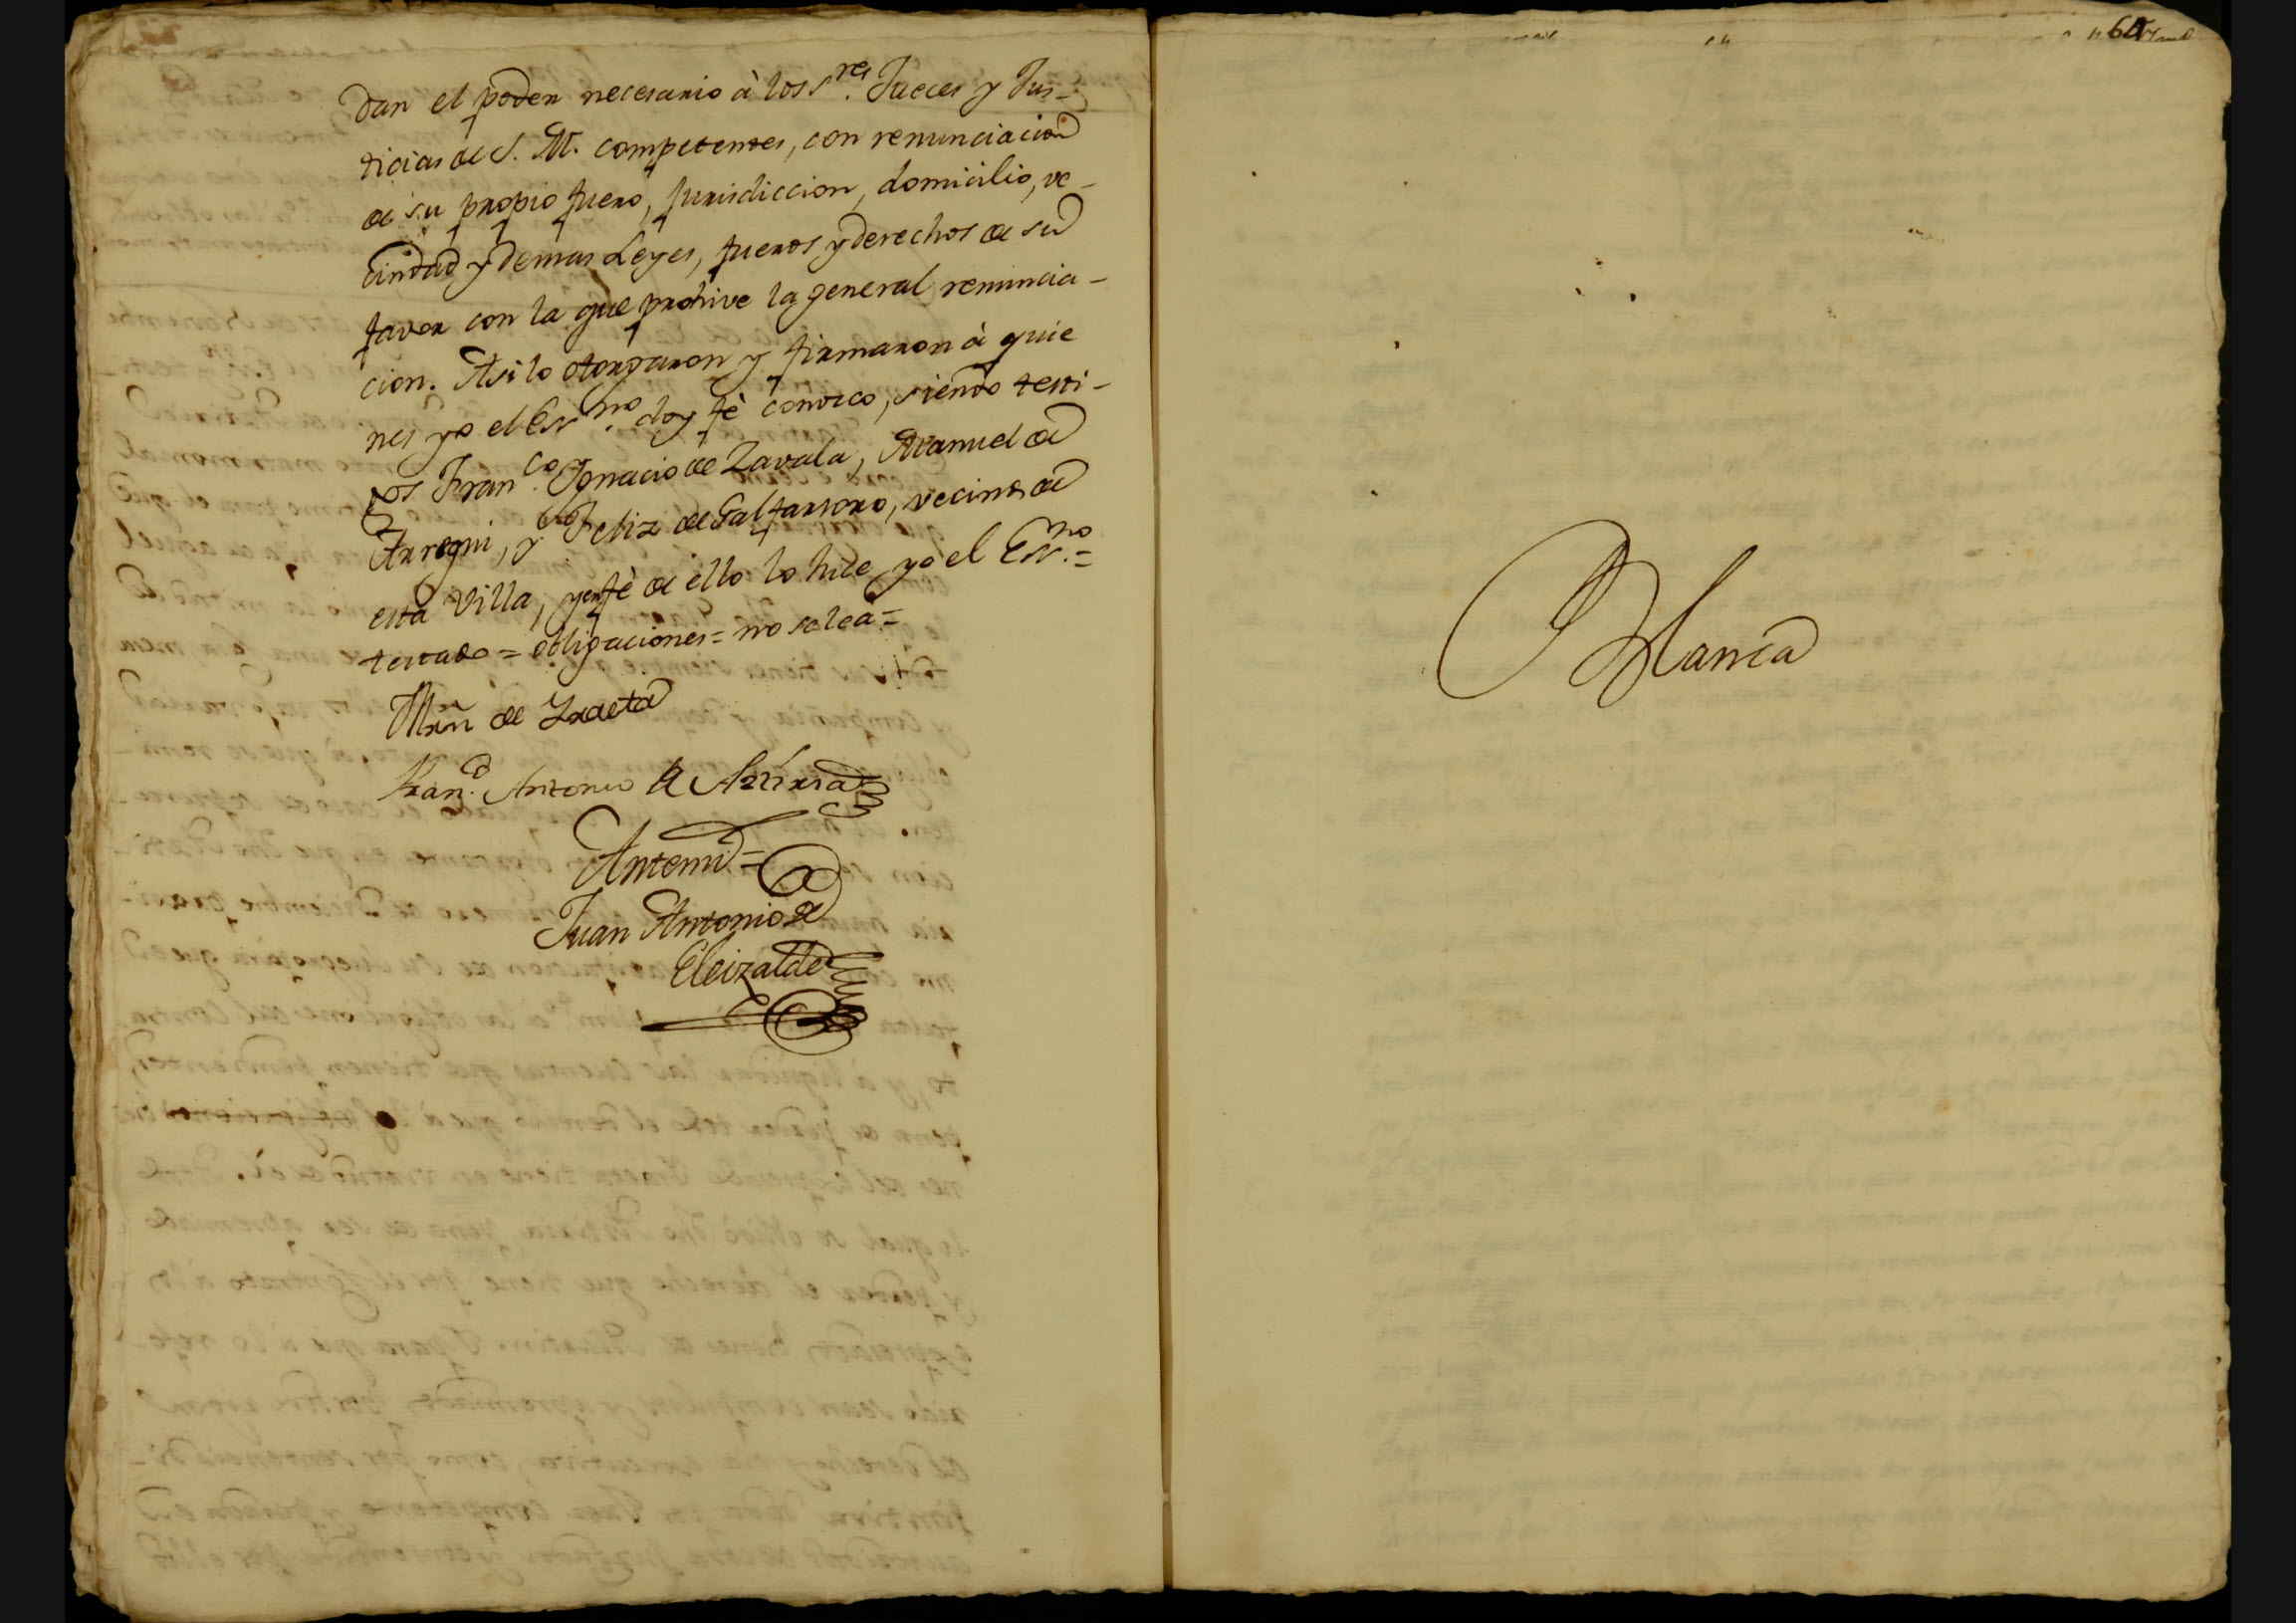 dan el poder necesario à los S.res Jueces y Jus-
ticias de S. M. competentes, con renunciacion
de su propio fuero, jurisdiccion, domicilio, ve-
cindad y demas Leyes, fueros y derechos de su
favor con la que prohive la general renuncia-
cion. Asi lo otorgaron y firmaron à quie
nes yo el Es.no doy fè conozco, siendo testi-
gos Fran.co Ignacio de Zavala, Manuel de
Arregui, y Feliz de Galfarsoro, vecinos de
esta Villa, y en fè de ello lo hice yo el Es.no =
testado = obligaciones = no se lea =
Mrn de Iraeta
Fran.co Antonio de
Antemi =
Juan Antonio de
Eleizalde
64
Blanca